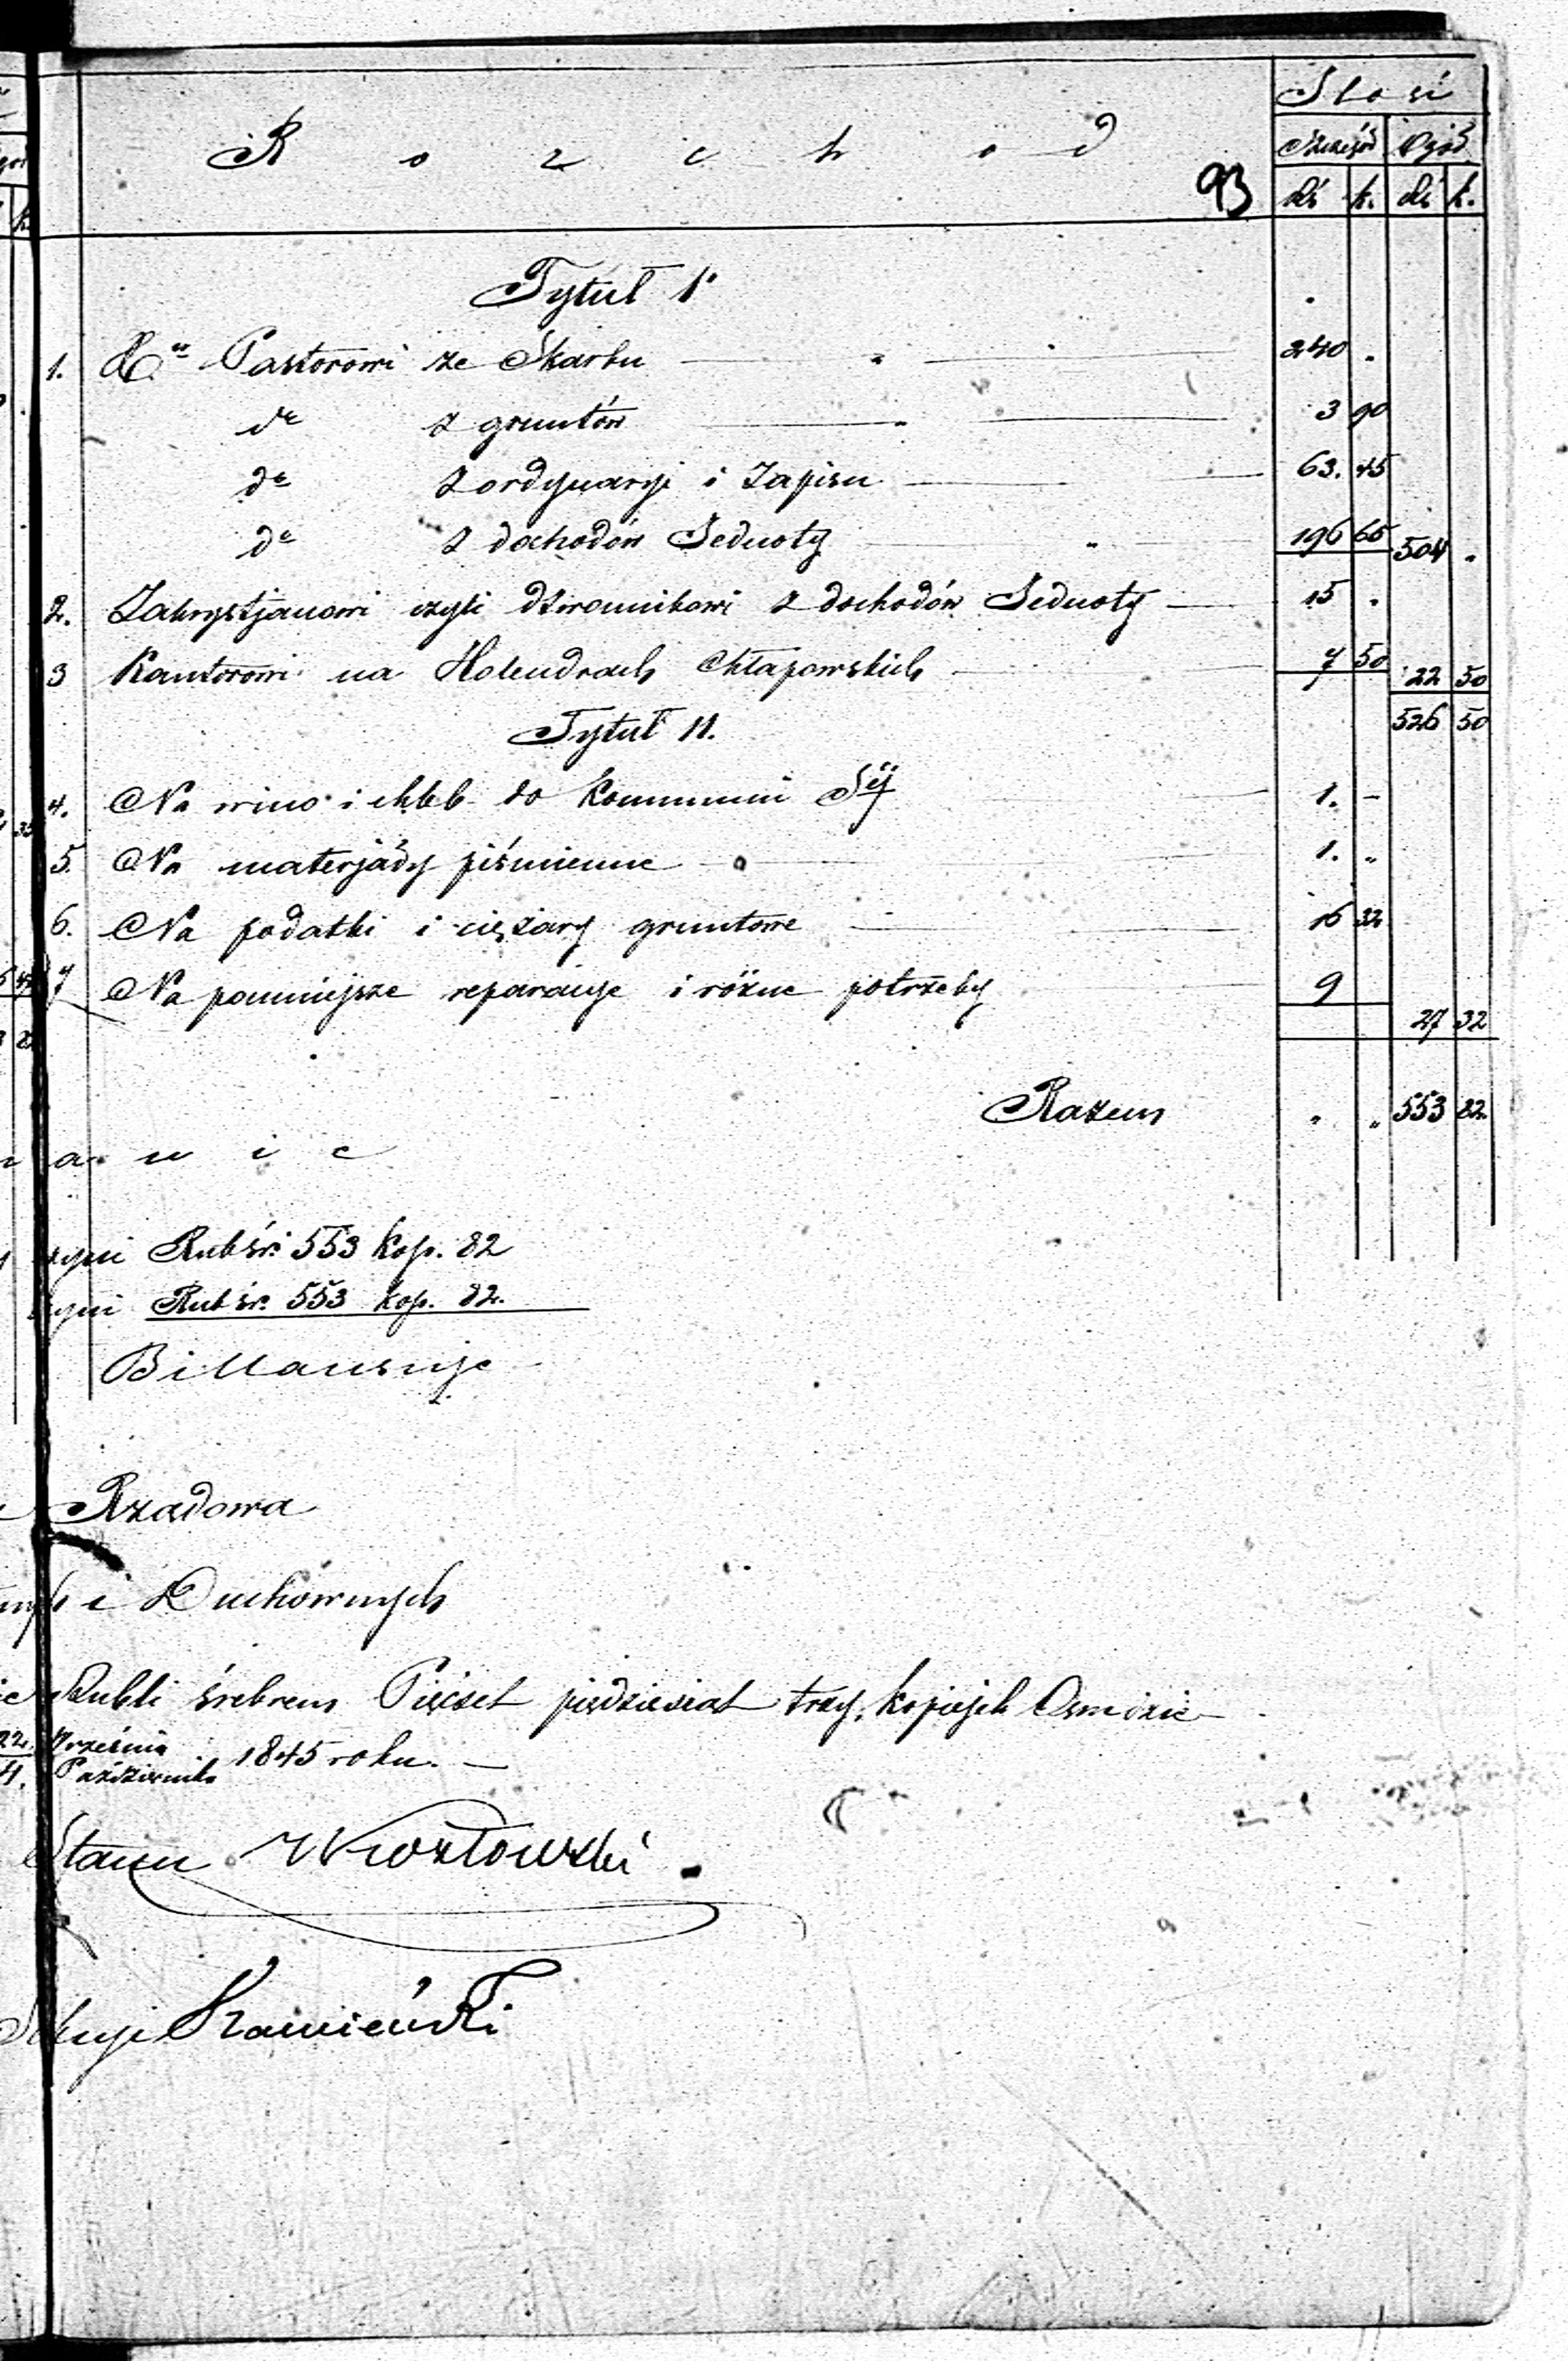 Ilość
R o z c h ó d
Szczegół Ogół
93
Rś k. Rś k.
Tytuł 1.
1. Xu Pastorowi ze Skarbu 240 "
do z gruntów 3 90
do z ordynaryi i Zapisu 63. 45
do z dochodów Jednoty 196 65 504 "
2. Zakrystjanowi czyli dzwonnikowi z dochodów Jednoty 15 "
3 Kantorowi na Holendrach Chłapowskich 7 50 22 50
526 50
Tytuł 11.
4. Na wino i chleb do Kommunii Sěj 1. –
5. Na materjały piśmienne 1. "
6. Na podatki i ciężary gruntowe 16 32
7 Na pomniejsze reparacye i różne potrzeby 9
27 32
Razem " " 553 82.
a n i e
Rubśr. 553 kop. 82
Rubśr. 553 kop. 82.
Billansuje
Rządowa
i Duchownych
Rubli śrebrem Pięćset piędziesiąt trzy, kopiejek Osmdzie
22. Września
4. Października 1845 roku. —
Stanu